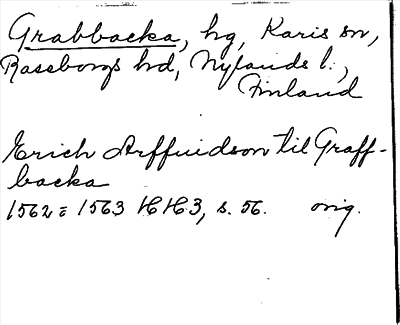 Grabbacka, hg, Karis sn,
Raseborgs hd, Nylands l.,
Finland
Erich Arffuidson til Graff-
backa
1562=1563 HH3, s. 56. orig.